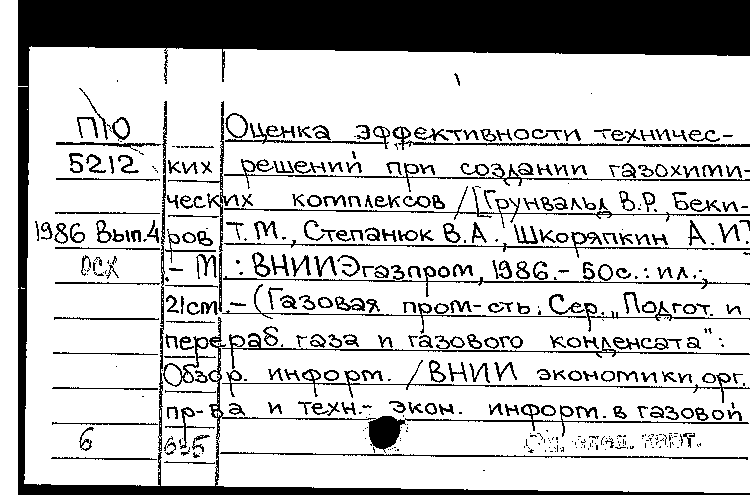 П10 Оценка эффективности техничес-
5212 ких решений при создании газохими-
ческих комплексов /[Грунвальд В.Р., Беки-
1986 Вып.4 ров Т.М., Степанюк В.А., Шкоряпкин А.И.]
ОСХ .- М. : ВНИИЭгазпром, 1986.- 50с.: ил.;
21см.- (Газовая пром-сть. Сер. „Подгот. и
перераб. газа и газового конденсата":
Обзор. информ. / ВНИИ экономики, орг.
пр-ва и техн.- экон. информ. в газовой
6 См. след. карт.